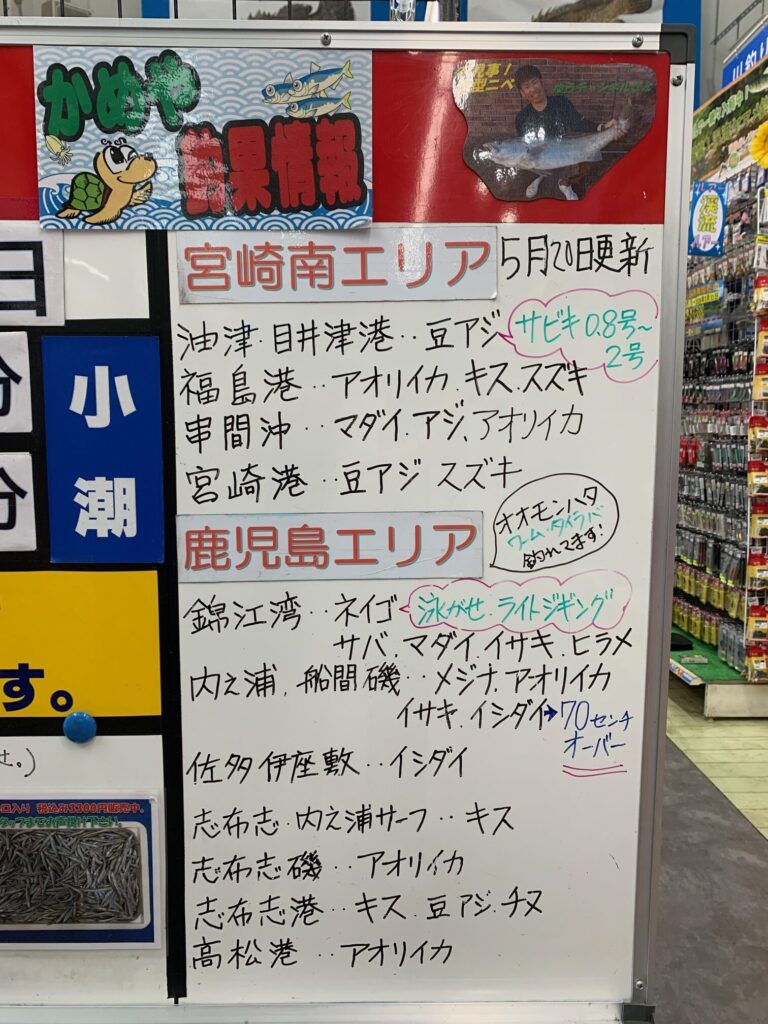 かめや
釣果情報
ゆうチャンネルさま
宮崎南エリア 5月20日更新
油津・目井津港‥豆アジ サビキ0.8号~2号
福島港‥アオリイカ.キス.スズキ
串間沖‥マダイ.アジ、アオリイカ
宮崎港‥豆アジ スズキ
鹿児島エリア
オオモンハタ
ワーム・タイラバ
釣れてます!
錦江湾‥ネイゴ 泳がせ・ライトジギング
サバ.マダイ.イサキ.ヒラメ
内之浦.船間磯‥メジナ.アオリイカ
イサキ.イシダイ→70センチ
オーバー
佐多伊座敷‥イシダイ
志布志・内之浦サーフ‥キス
志布志磯‥アオリイカ
志布志港‥キス.豆アジ.チヌ
高松港‥アオリイカ
日
分
分
小潮
す。
せ。)
口入り 税込み3300円販売中。
渓流
ルアー